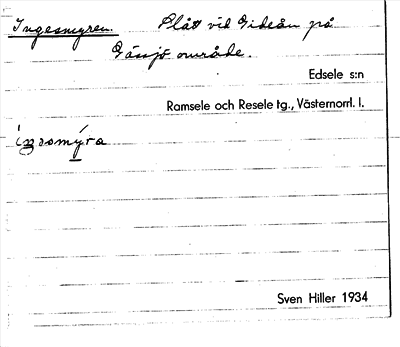 Ingesmyren. Slått vid Gideån på
Gässjö område.
Edsele s:n
Ramsele och Resele tg., Västernorrl. l.
Sven Hiller 1934